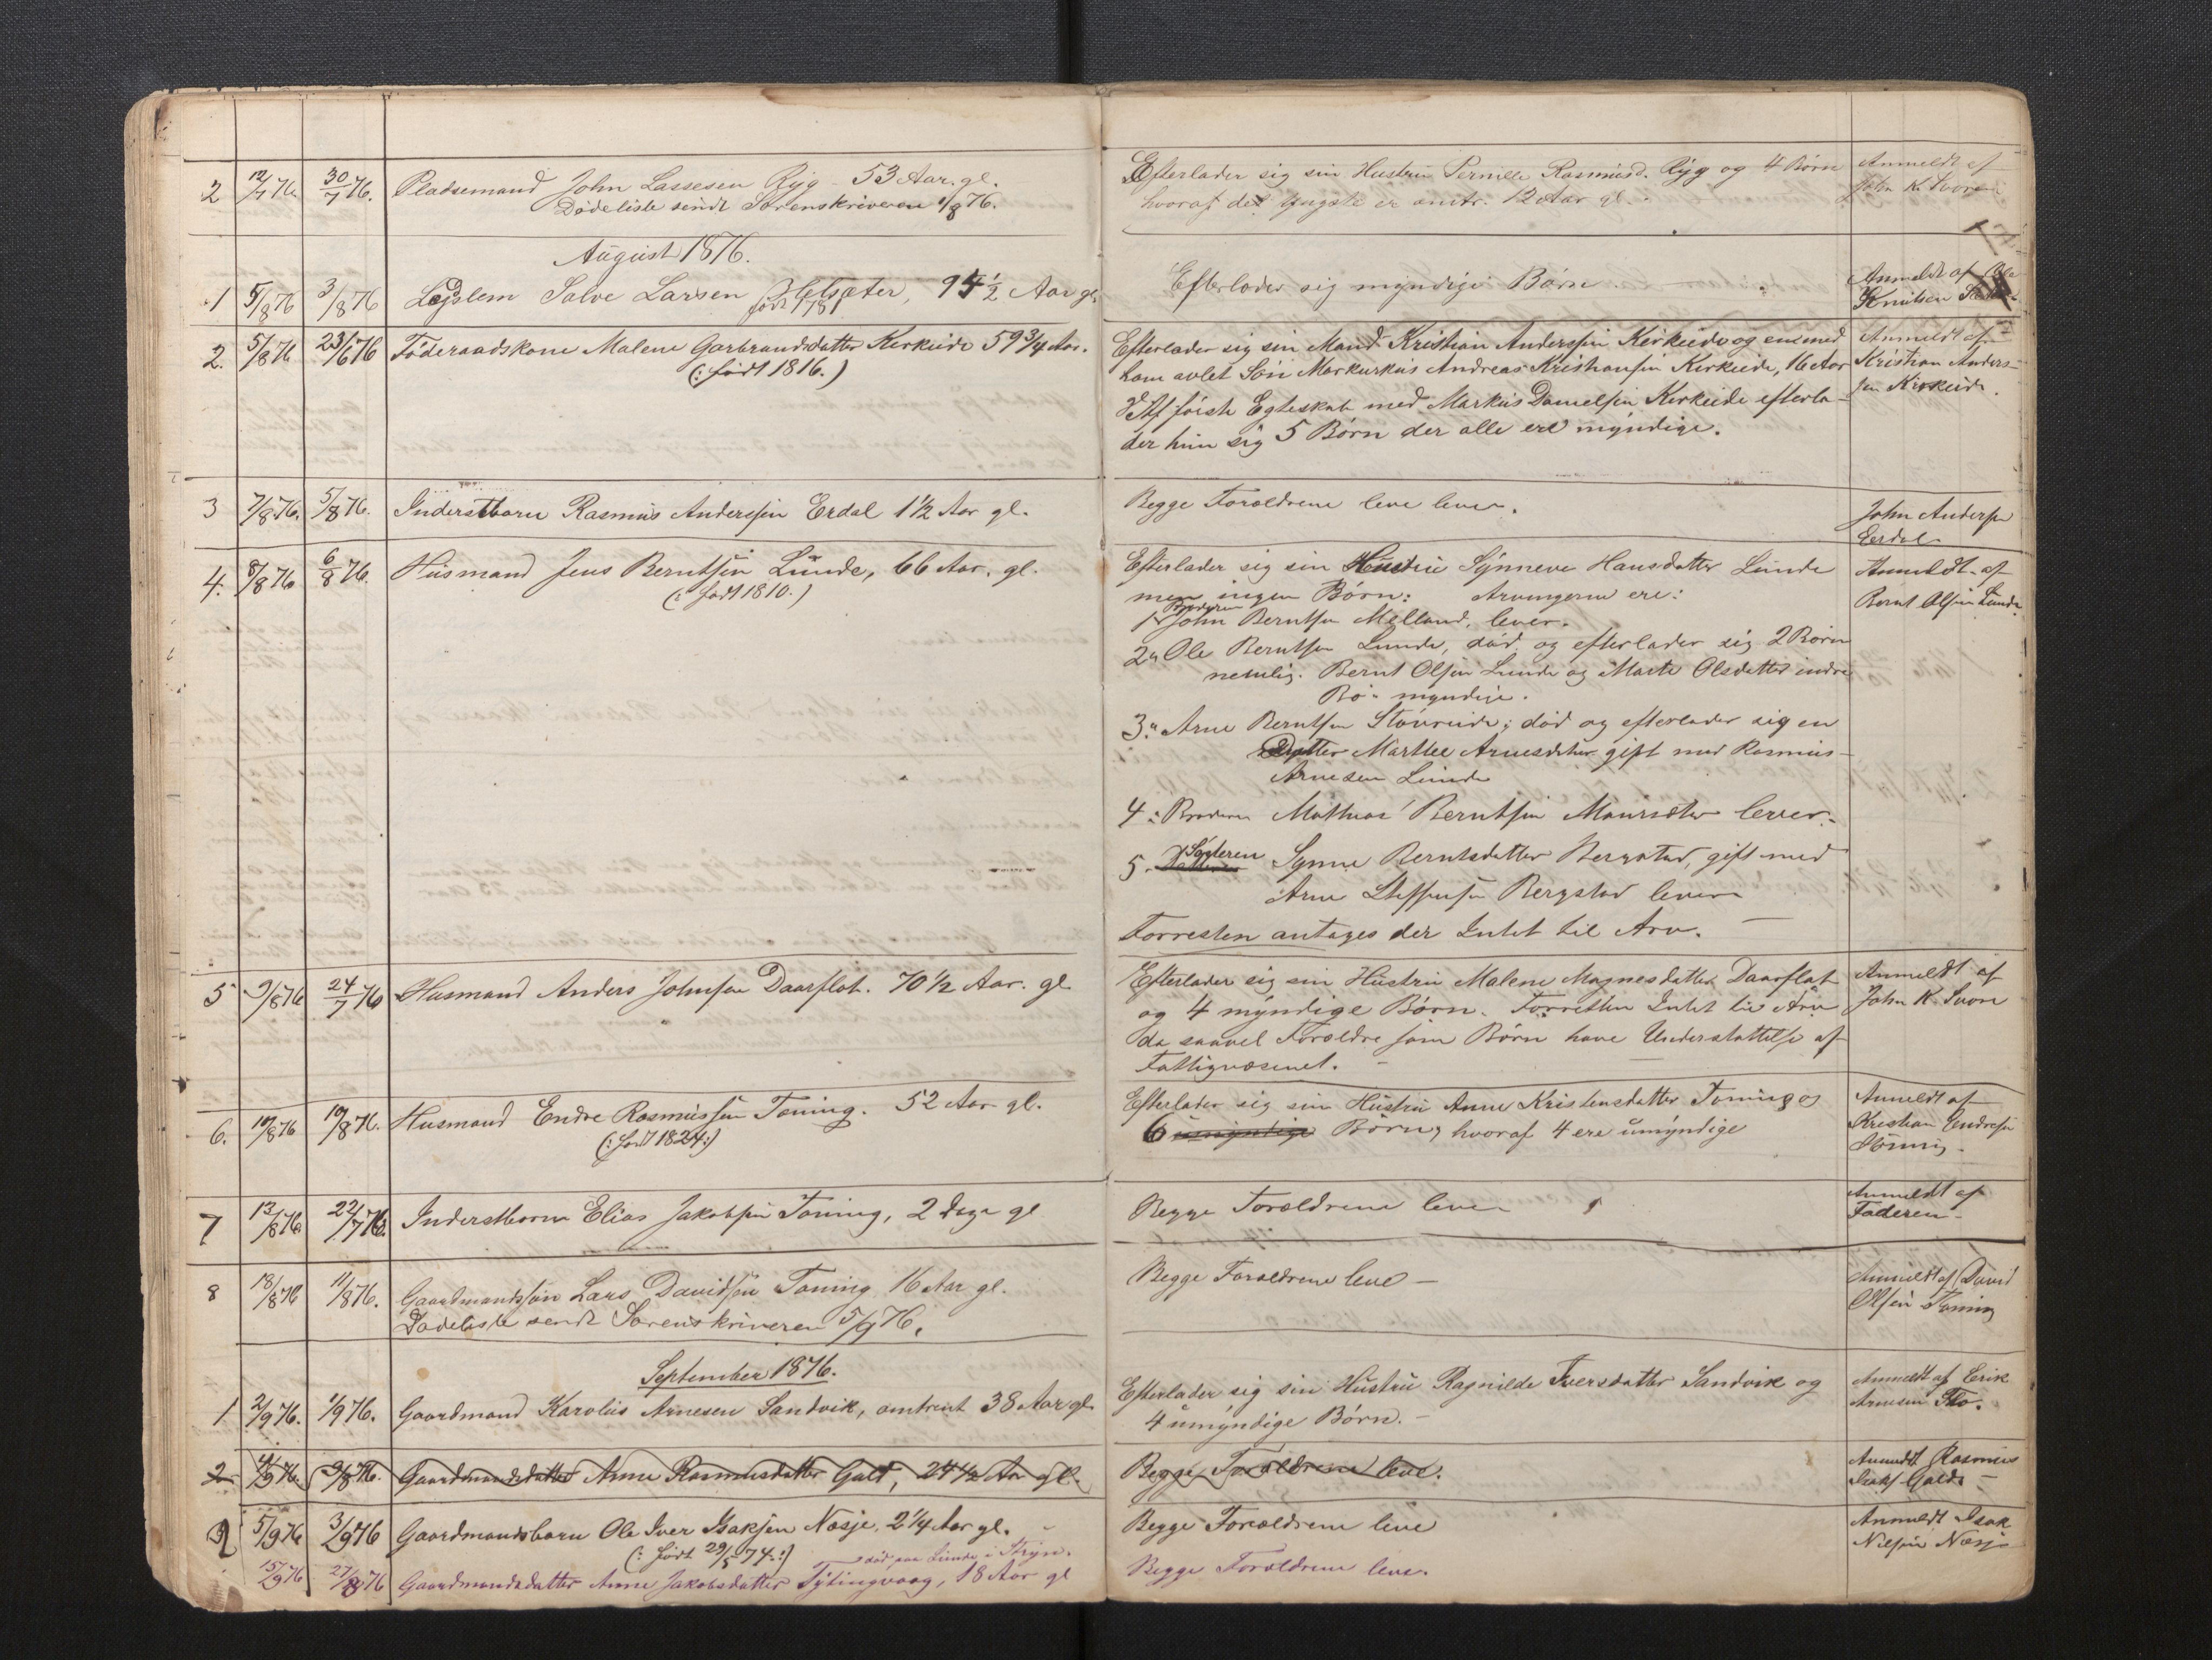 2 12/7 76. 30/7 76. Pladsemand John Lassesen Ryg - 53 Aar. gl.
Dødeliste sendt Sorenskriveren 1/8 76.
Efterlader sig sin Hustru Pernille Rasmusd. Ryg og 4 Børn
hvoraf det yngste er omtr. 12 Aar gl. -
Anmeldt af
John K. Svore
August 1876.
1 5/8 76 3/8 76 Lægslem Salve Larsen 94 1/2 Aar gl.
født 1781
Efterlader sig myndige Børn.
Anmeldt af Ole
Knutsen
2. 5/8 76 23/6 76 Føderaadskone Malene Garbrandsdatter Kirkeide 59 3/4 Aar.
(: født 1816.)
Efterlader sig sin Mand Kristian Anderssen Kirkeide og en med
ham avlet Søn Markurkus Andreas Kristiansen Kirkeide, 16 Aar
Af første Egteskab med Markus Danielsen Kirkeide efterla-
der hun sig 5 Børn der alle ere myndige.
Anmeldt af
Kristian Anders-
sen Kirkeide.
3 7/8 76. 5/8 76. Inderstbarn Rasmus Anderssen Erdal 1 1/2 Aar gl.
Begge Forældrene leve lever.
John Anderssen
Eerdal
4. 8/8 76 6/8 76. Husmand Jens Berntsen Lunde, 66 Aar. gl.
(: født 1810.)
Efterlader sig sin Hustru Synneve Hansdatter Lunde
men ingen Børn: Arvingerne ere:
1 Broderen John Berntsen Melland, lever.
2. Ole Berntsen Lunde, død og efterlader sig 2 Børn
nemlig. Bernt Olsen Lunde og Marte Olsdatter indre
Bø - myndige.
3. Arne Berntsen Storeide; død og efterlader sig en
Datter Marthe Arnesdatter gift med Rasmus
Arnesen Lunde
4. Broderen Mathias Berntsen Maurseter lever.
5. Datteren Søsteren Synne Berntsdatter Bergstad, gift med
Arne Steffensen Bergstad lever
Forresten antages der Intet til Arv. -
Anmeldt af
Bernt Olsen Lunde.
5 9/8 76 24/7 76 Husmand Anders Johnsen Daarflot. 70 1/2 Aar. gl.
Efterlader sig sin Hustru Malene Magnesdatter Daarflot
og 4 myndige Børn. Forresten Intet til Arv
da saavel Forældre som Børn have Understøttelse af
Fattigvæsenet. -
Anmeldt af
John K. Svore
6. 10/8 76 10/8 76. Husmand Endre Rasmussen Toning. 52 Aar gl.
(: født 1824:)
Efterlader sig sin Hustru Anne Kristensdatter Toning og
6 umyndige Børn, hvoraf 4 ere umyndige
Anmeldt af
Kristian Endresen
Toning.
7 13/8 76 22/7 76. Inderstbarn Elias Jakobsen Toning, 2 Dage gl
Begge Forældrene lever
Anmeldt af
Faderen -
8 18/8 76 11/8 76. Gaardmandssøn Lars Davidsen Toning 16 Aar gl.
Dødeliste sendt Sorenskriveren 5/9 76.
Begge Forældrene leve -
Anmeldt af David
Olsen Toning
September 1876.
1 2/9 76. 1/9 76. Gaardmand Karolus Arnesen Sandvik, omtrent 38 Aar gl.
Efterlader sig sin Hustru Ragnilde Iversdatter Sandvik og
4 umyndige Børn. -
Anmeldt af Erik
Arnesen Flo.
2 4/9 76. 9/8 76. Gaardmandsdatter Anne Rasmusdatter Gald, 24 1/2 Aar gl.
Begge Forældrene leve.
Anmeldt Rasmus
Gald -
2 5/9 76 3/9 76 Gaardmandsbarn Ole Iver Isaksen Nosje, 2 1/4 Aar gl.
(: født 29/5 74.:)
Begge Forældrene leve
Anmeldt Isak
Nilsen Nosje
død paa Lunde i Stryn.
15/9 76 27/8 76 Gaardmandsdatter Anne Jakobsdatter Tytingvaag, 18 Aar gl
Begge Forældrene leve.